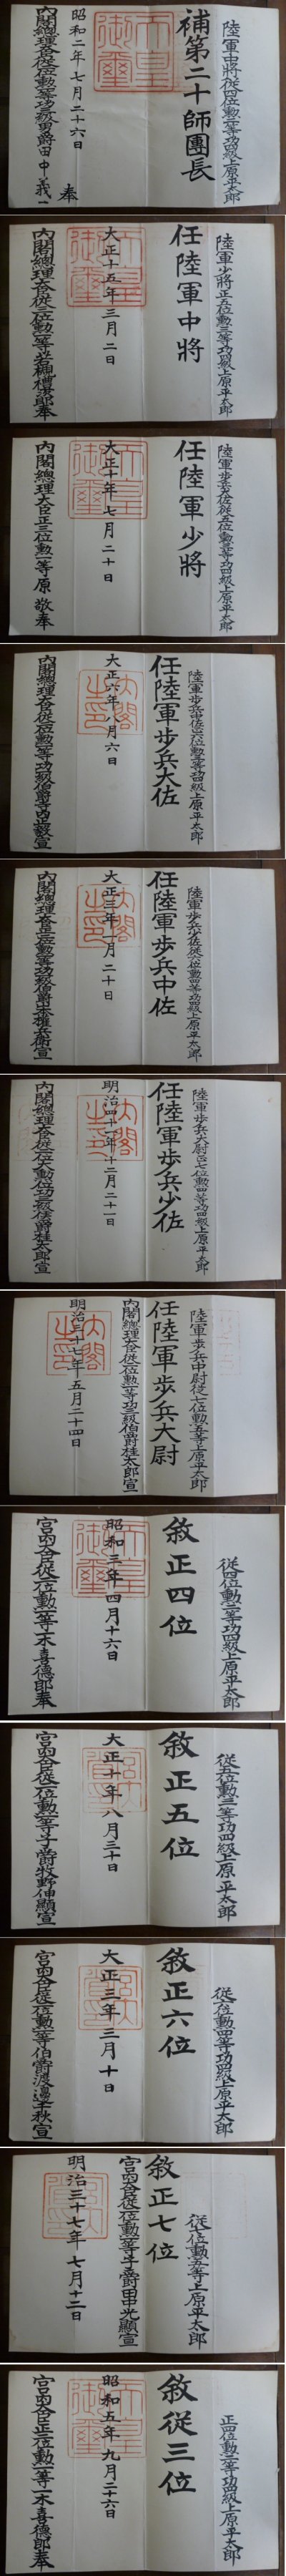 陸軍中將從四位勳二等功四級上原平太郎
補第二十師團長
天皇御璽
昭和二年七月二十六日
內閣總理大臣從二位勳一等功三級男爵田中義一奉
陸軍少將正五位勳三等功四級上原平太郎
任陸軍中將
天皇御璽
大正十五年三月二日
內閣總理大臣從二位勳一等若槻禮次郎奉
陸軍步兵大佐從五位勳三等功四級上原平太郎
任陸軍少將
天皇御璽
大正十年七月二十日
內閣總理大臣正三位勳一等原敬奉
陸軍步兵中佐正六位勳三等功四級上原平太郎
任陸軍步兵大佐
內閣之印
大正六年八月六日
內閣總理大臣從二位勳一等功一級伯爵寺內正毅宣
陸軍步兵少佐從六位勳四等功四級上原平太郎
任陸軍步兵中佐
內閣之印
大正三年一月二十日
內閣總理大臣從二位勳一等功二級伯爵山本權兵衞宣
陸軍步兵大尉正七位勳四等功四級上原平太郎
任陸軍步兵少佐
內閣之印
明治四十一年十二月二十一日
內閣總理大臣從二位大勳位功三級侯爵桂太郎宣
陸軍步兵中尉從七位勳五等上原平太郎
任陸軍步兵大尉
內閣總理大臣從二位勳一等功三級伯爵桂太郎宣
內閣之印
明治三十七年五月二十四日
從四位勳二等功四級上原平太郎
敘正四位
天皇御璽
昭和三年四月十六日
宮內大臣從二位勳一等一木喜德郎奉
從五位勳三等功四級上原平太郎
敘正五位
大正十年八月三十日
宮內大臣從二位勳一等子爵牧野伸顯宣
從六位勳四等功四級上原平太郎
敘正六位
大正三年三月十日
宮內大臣從二位勳一等伯爵渡邊千秋宣
從七位勳五等上原平太郎
敘正七位
宮內大臣從二位勳一等子爵田中光顯宣
明治三十七年七月十二日
正四位勳二等功四級上原平太郎
敘從三位
天皇御璽
昭和五年九月二十六日
宮內大臣正三位勳一等一木喜德郎奉